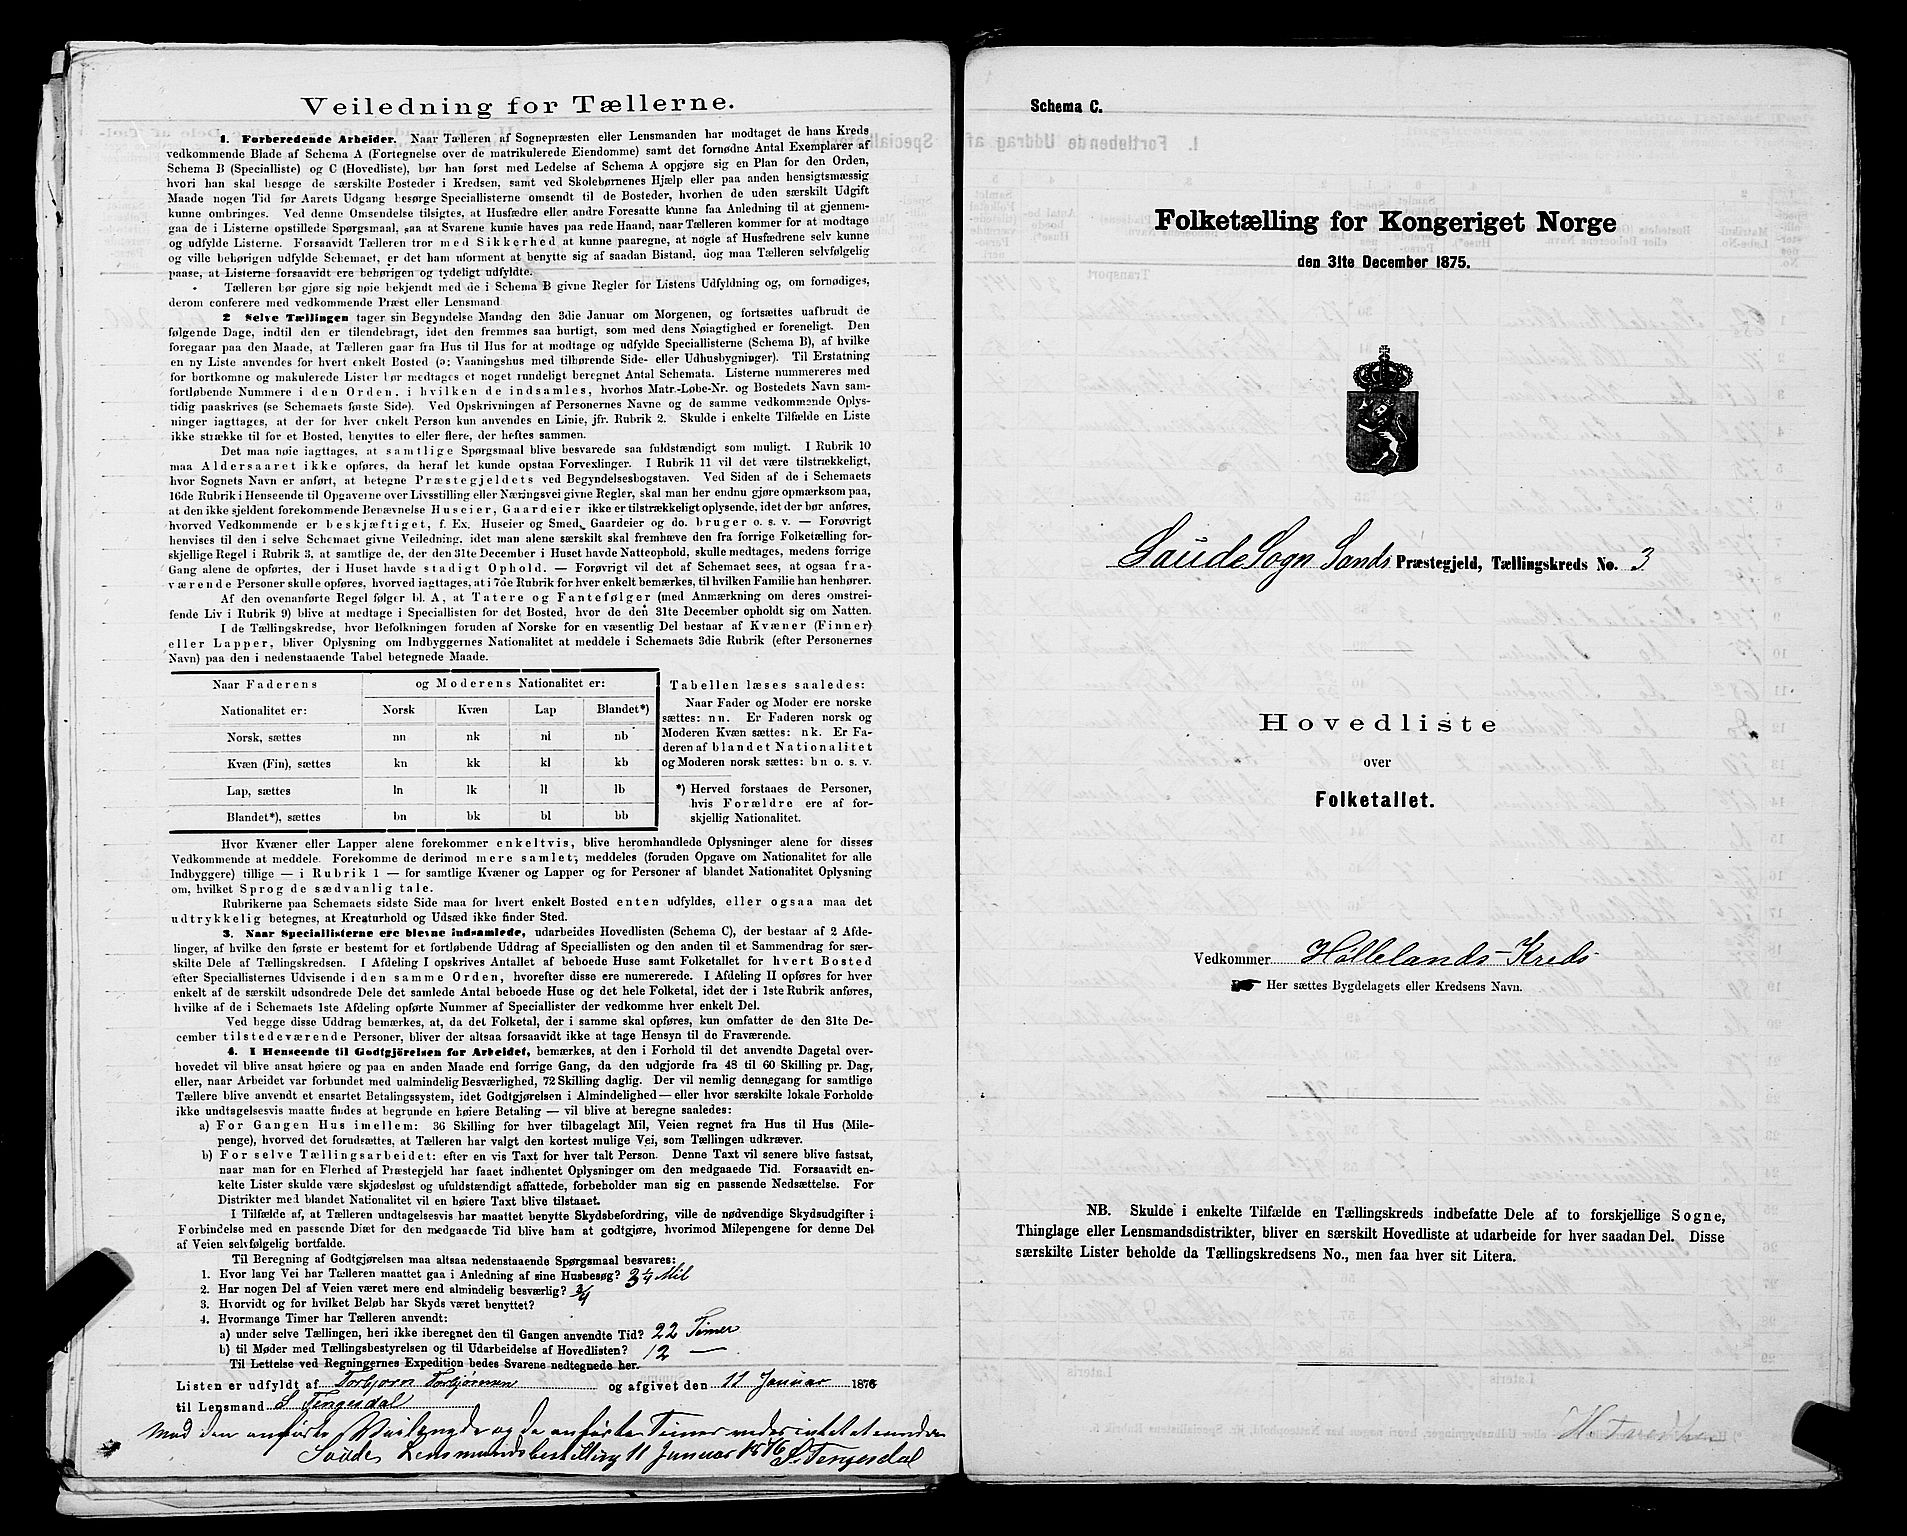 Veiledning for Tællerne.
1. Forberedende Arbeider. Naar Tælleren af Sognepræsten eller Lensmanden har modtaget de hans Kreds
vedkommende Blade af Schema A (Fortegnelse over de matrikulerede Eiendomme) samt det fornødne Antal Exemplarer af
Schema B (Specialliste) og C (Hovedliste), bør han først med Ledelse af Schema A opgjøre sig en Plan for den Orden,
hvori han skal besøge de særskilte Bosteder i Kredsen, samt ved Skolebørnenes Hjælp eller paa anden hensigtsmæssig
Maade nogen Tid før Aarets Udgang besørge Speciallisterne omsendt til de Bosteder, hvorhen de uden særskilt Udgift
kunne ombringes. Ved denne Omsendelse tilsigtes, at Husfædre eller andre Foresatte kunne faa Anledning til at gjennem-
gaa de i Listerne opstillede Spørgsmaal, saa at Svarene kunne haves paa rede Haand, naar Tælleren kommer for at modtage
og udfylde Listerne. Forsaavidt Tælleren tror med Sikkerhed at kunne paaregne, at nogle af Husfædrene selv kunne
og ville behørigen udfylde Schemaet, er det ham uforment at benytte sig af saadan Bistand, dog maa Tælleren selvfølgelig
paase, at Listerne forsaavidt ere behørigen og tydeligt udfyldte.
Tælleren bør gjøre sig nøie bekjendt med de i Schema B givne Regler for Listens Udfyldning og, om fornødiges,
derom conferere med vedkommende Præst eller Lensmand.
2. Selve Tællingen tager sin Begyndelse Mandag den 3die Januar om Morgenen, og fortsættes uafbrudt de
følgende Dage, indtil den er tilendebragt, idet den fremmes saa hurtigt, som med dens Nøiagtighed er foreneligt. Den
foregaar paa den Maade, at Tælleren gaar fra Hus til Hus for at modtage og udfylde Speciallisterne (Schema B), af hvilke
en ny Liste anvendes for hvert enkelt Bosted (ɔ: Vaaningshus med tilhørende Side- eller Udhusbygninger). Til Erstatning
for bortkomne og makulerede Lister bør medtages et noget rundeligt beregnet Antal Schemata. Listerne nummereres med
fortløbende Nummere i den Orden, i hvilken de indsamles, hvorhos Matr.-Løbe-Nr. og Bostedets Navn sam-
tidig paaskrives (se Schemaets første Side). Ved Opskrivningen af Personernes Navne og de samme vedkommende Oplys-
ninger iagttages, at der for hver enkelt Person kun anvendes en Linie, jfr. Rubrik 2. Skulde i enkelte Tilfælde en Liste
ikke strække til for et Bosted, benyttes to eller flere, der heftes sammen.
Det maa nøie iagttages, at samtlige Spørgsmaal blive besvarede saa fuldstændigt som muligt. I Rubrik 10
maa Aldersaaret ikke opføres, da heraf let kunde opstaa Forvexlinger. I Rubrik 11 vil det være tilstrækkeligt,
hvor Sognets Navn er anført, at betegne Præstegjeldets ved Begyndelsesbogstaven. Ved Siden af de i Schemaets
16de Rubrik i Henseende til Opgaverne over Livsstilling eller Næringsvei givne Regler, skal man her endnu gjøre opmærksom paa,
at den ikke sjeldent forekommende Benævnelse Huseier, Gaardeier ikke er tilstrækkeligt oplysende, idet der bør anføres,
hvorved Vedkommende er beskjæftiget, f. Ex. Huseier og Smed, Gaardeier og do. bruger o. s. v. — Forøvrigt
henvises til den i selve Schemaet givne Veiledning, idet man alene særskilt skal fremhæve den fra forrige Folketælling for-
skjellige Regel i Rubrik 3, at samtlige de, der den 31te December i Huset havde Natteophold, skulle medtages, medens forrige
Gang alene de opførtes, der i Huset havde stadigt Ophold. — Forøvrigt vil det af Schemaet sees, at ogsaa fra-
værende Personer skulle opføres, hvorved iagttages, at i 7de Rubrik for hver enkelt bemærkes, til hvilken Familie han henhører.
Af den ovenanførte Regel følger bl. A, at Tatere og Fantefølger (med Anmærkning om deres omstrei-
fende Liv i Rubrik 9) blive at medtage i Speciallisten for det Bosted, hvor de den 31te December opholdt sig om Natten.
I de Tællingskredse, hvor Befolkningen foruden af Norske for en væsentlig Del bestaar af Kvæner (Finner)
eller Lapper, bliver Oplysning om Indbyggernes Nationalitet at meddele i Schemaets 3die Rubrik (efter Personernes
Navn) paa den i nedenstaaende Tabel betegnede Maade.
Naar Faderens og Moderens Nationalitet er:
Nationalitet er: Norsk Kvæn Lap Blandet*)
Norsk, sættes nn nk nl nb
Kvæn (Fin), sættes kn kk kl kb
Lap, sættes ln lk ll lb
Blandet*), sættes bn bk bl bb
Tabellen læses saaledes:
Naar Fader og Moder ere norske
sættes: nn. Er Faderen norsk og
Moderen Kvæn sættes: nk. Er Fa-
deren af blandet Nationalitet
og Moderen norsk sættes: bn o. s. v.
*) Herved forstaaes de Personer,
hvis Forældre ere af for-
skjellig Nationalitet.
Hvor Kvæner eller Lapper alene forekommer enkeltvis, blive heromhandlede Oplysninger alene for disses
Vedkommende at meddele. Forekomme de derimod mere samlet, meddeles (foruden Opgave om Nationalitet for alle
Indbyggere) tillige — i Rubrik 1 — for samtlige Kvæner og Lapper og for Personer af blandet Nationalitet Oplysning
om, hvilket Sprog de sædvanlig tale.
Rubrikerne paa Schemaets sidste Side maa for hvert enkelt Bosted enten udfyldes, eller ogsaa maa det
udtrykkelig betegnes, at Kreaturhold og Udsæd ikke finder Sted.
3. Naar Speciallisterne ere blevne indsamlede, udarbeides Hovedlisten (Schema C), der bestaar af 2 Afde-
linger, af hvilke den første er bestemt for et fortløbende Uddrag af Speciallisten og den anden til et Sammendrag for sær-
skilte Dele af Tællingskredsen. I Afdeling I opskrives Antallet af beboede Huse samt Folketallet for hvert Bosted
efter Speciallisternes Udvisende i den samme Orden, hvorefter disse ere numererede. I Afdeling II opføres for hver
enkelt af de særskilt udsondrede Dele det samlede Antal beboede Huse og det hele Folketal, idet der i 1ste Rubrik anføres,
hvilke af de i Schemaets 1ste Afdeling opførte Nummer af Speciallister der vedkomme hver enkelt Del.
Ved begge disse Uddrag bemærkes, at, da det Folketal, der i samme skal opføres, kun omfatter de den 31te De-
cember tilstedeværende Personer, bliver der altsaa forsaavidt ikke at tage Hensyn til de Fraværende.
4. I Henseende til Godtgjörelsen for Arbeidet, bemærkes, at den i Forhold til det anvendte Dagetal over-
hovedet vil blive ansat høiere og paa en anden Maade end forrige Gang, da den udgjorde fra 48 til 60 Skilling pr. Dag,
eller, naar Arbeidet var forbundet med ualmindelig Besværlighed, 72 Skilling daglig. Der vil nemlig dennegang for samtlige
Tællere blive anvendt et ensartet Betalingssystem, idet Godtgjørelsen i Almindelighed — eller hvor særskilte lokale Forholde
ikke undtagelsesvis maatte findes at begrunde en høiere Betaling — vil blive at beregne saaledes:
a) For Gangen Hus imellem: 36 Skilling for hver tilbagelagt Mil, Veien regnet fra Hus til Hus (Mile-
penge), hvorved det forudsættes, at Tælleren har valgt den kortest mulige Vei, som Tællingen udkræver.
b) For selve Tællingsarbeidet: efter en vis Taxt for hver talt Person. Denne Taxt vil senere blive fastsat,
naar man for en Flerhed af Præstegjeld har faaet indhentet Oplysninger om den medgaaede Tid. Forsaavidt en-
kelte Lister skulde være skjødesløst og ufuldstændigt affattede, forbeholder man sig en passende Nedsættelse. For
Distrikter med blandet Nationalitet vil en høiere Taxt blive tilstaaet.
I Tilfælde af, at Tælleren undtagelsesvis har maattet benytte Skydsbefordring, ville de nødvendige Skydsudgifter i
Forbindelse med en passende Diæt for den medgaaede Tid blive ham at godtgjøre, hvorimod Milepengene for denne Del
af Veien selvfølgelig bortfalde.
Til Beregning af Godtgjørelsen maa altsaa nedenstaaende Spørgsmaal besvares:
1. Hvor lang Vei har Tælleren maattet gaa i Anledning af sine Husbesøg? 3¼ Mil
2. Har nogen Del af Veien været mere end almindelig besværlig? ¾
3. Hvorvidt og for hvilket Beløb har Skyds været benyttet?
4. Hvormange Timer har Tælleren anvendt:
a) under selve Tællingen, heri ikke iberegnet den til Gangen anvendte Tid? 22 Timer
b) til Møder med Tællingsbestyrelsen og til Udarbeidelse af Hovedlisten? 12 —
Til Lettelse ved Regningernes Expedition bedes Svarene nedtegnede her.
Listen er udfyldt af Torbjørn Torbjørnsen og afgivet den 11 Januar 1876
til Lensmand S Tengesdal
Mod den anførte Veilengde og de anførte Timer vides intet at erindre
Söude Lensmandsbestilling 11 Januar 1876 S. Tengesdal
Schema C.
Folketælling for Kongeriget Norge
den 31te December 1875.
Saude Sogn Sands Præstegjeld, Tællingskreds No. 3
Hovedliste
over
Folketallet.
Vedkommer Høllelands-Kreds
Her sættes Bygdelagets eller Kredsens Navn.
NB. Skulde i enkelte Tilfælde en Tællingskreds indbefatte Dele af to forskjellige Sogne,
Thinglage eller Lensmandsdistrikter, bliver en særskilt Hovedliste at udarbeide for hver saadan Del. Disse
særskilte Lister beholde da Tællingskredsens No., men faa hver sit Litera.